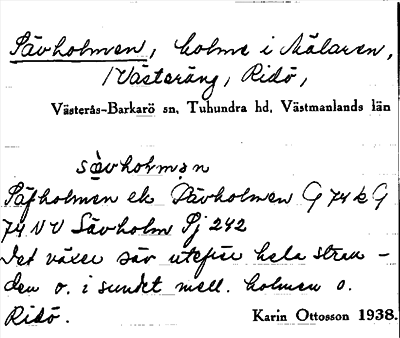 Sävholmen, holme i Mälaren,
Västeräng, Ridö,
Västerås-Barkarö sn, Tuhundra hd, Västmanlands län
sävholmən
Säfholmen ek Sävholmen G 74 k G
74 NV Sävholm Pj 242
Det växer säv utefter hela stran-
den o. i sundet mell. holmen o.
Ridö.
Karin Ottosson 1938.